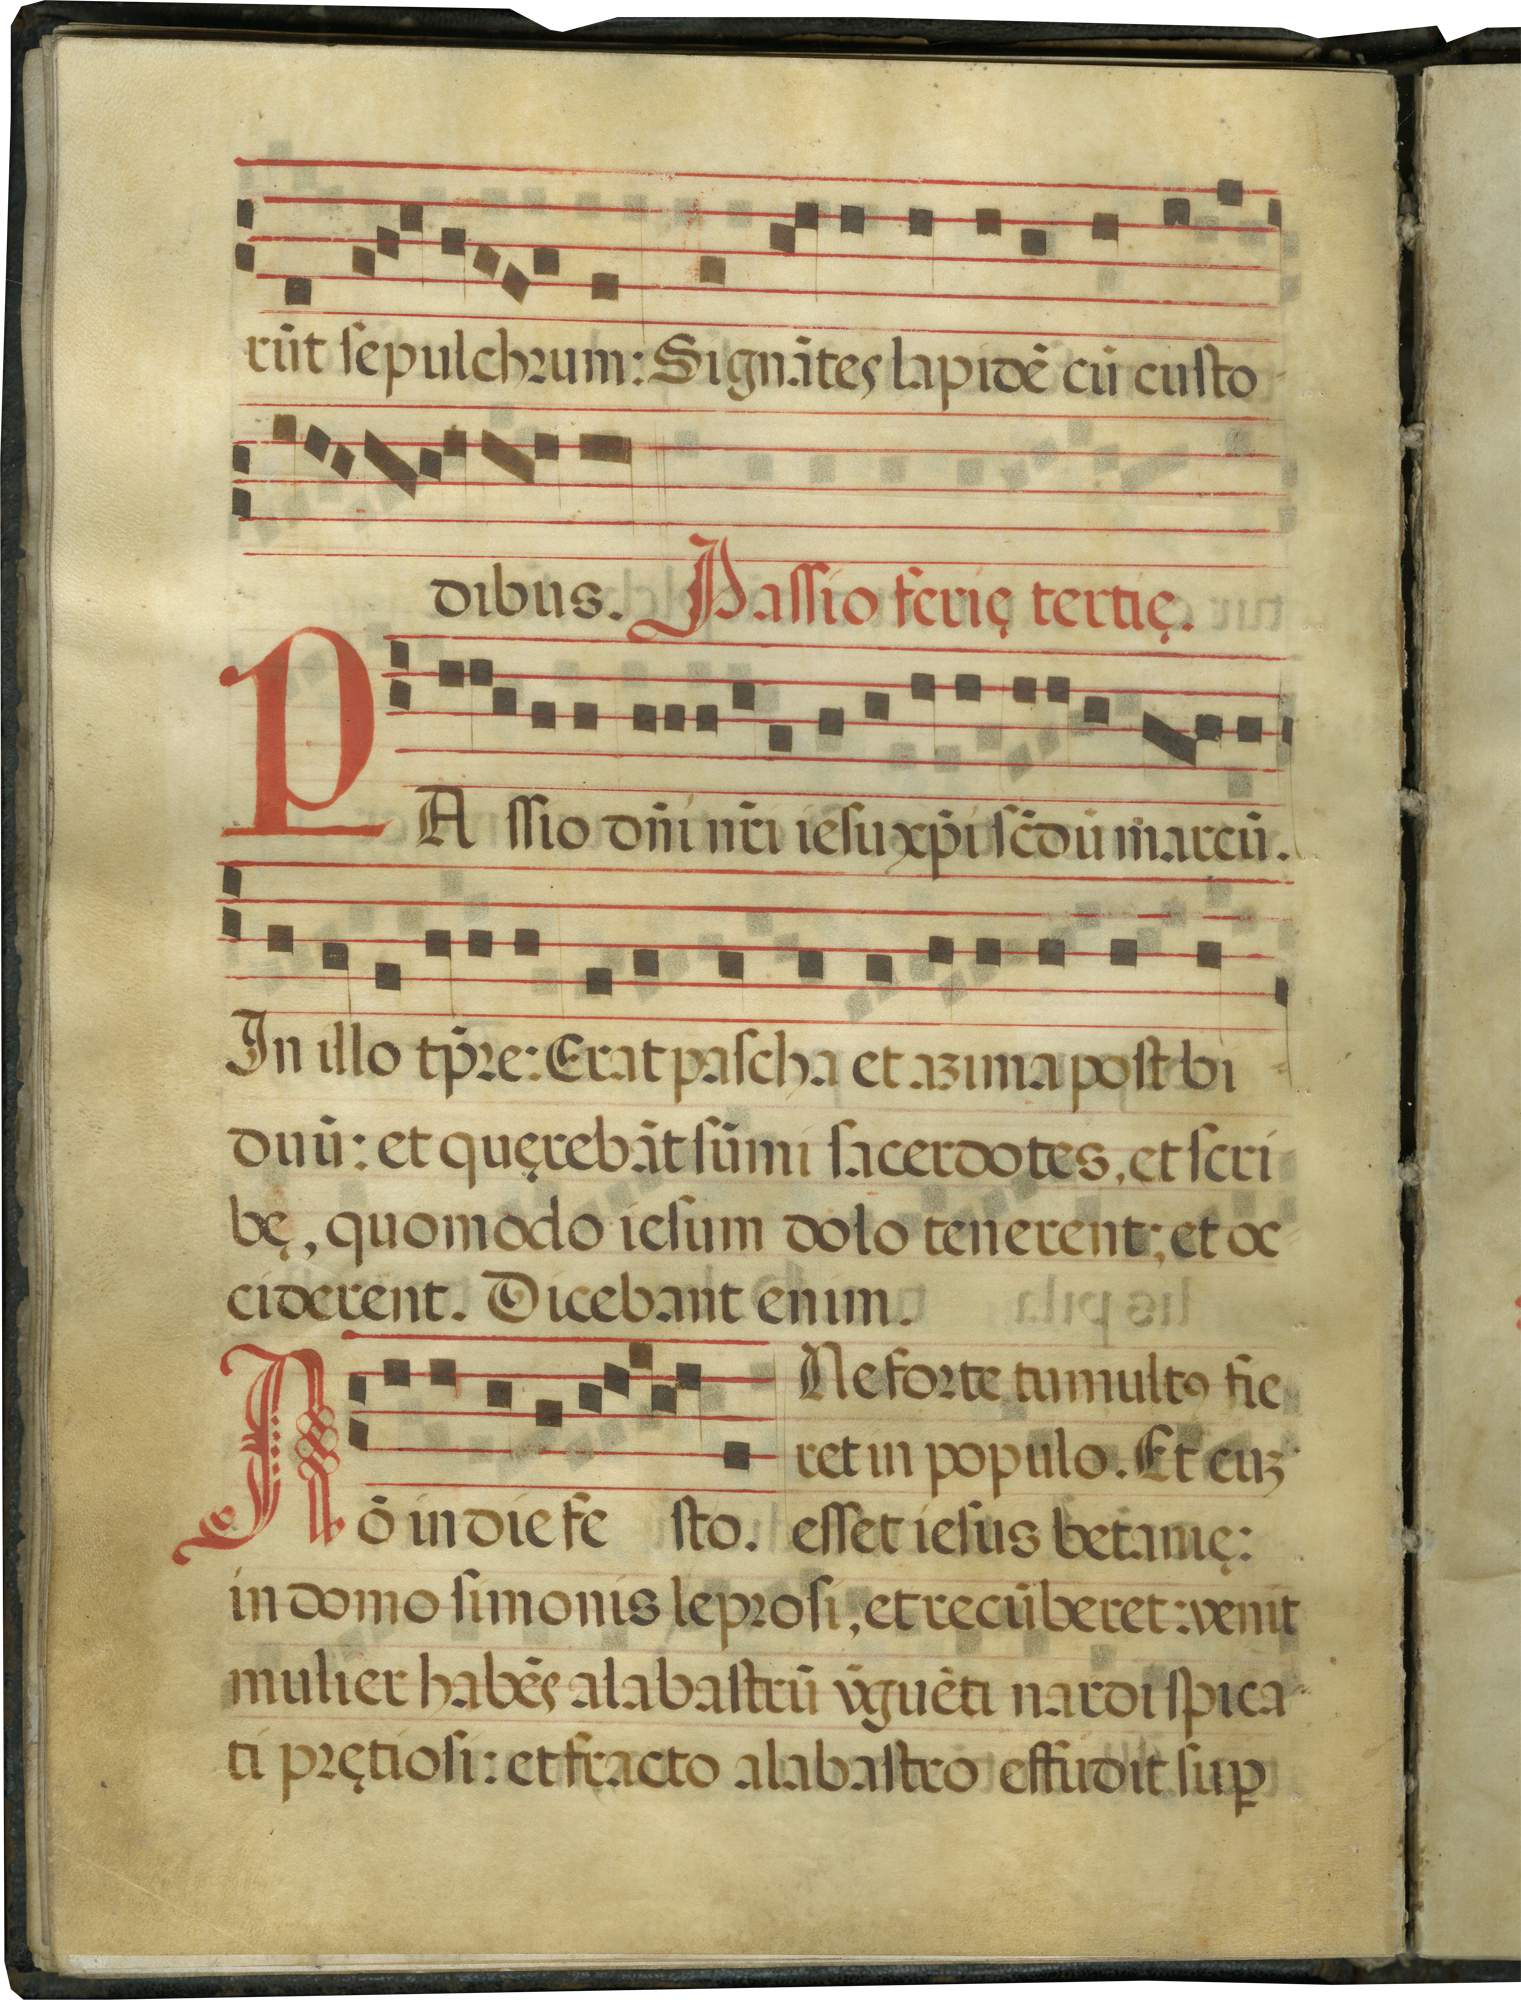 rūt sepulchrum: Signātes lapidē cū custo
dibus. Passio ferię tertię.
PAssio dn̄i nr̄i iesu xp̄i sc̄dū marcū.
In illo tp̄re: Erat pascha et azima post bi
duū: et quęrebāt sūmi sacerdotes, et scri
bę, quomodo iesum dolo tenerent: et oc
ciderent. Dicebant enim.
Nō in die festo. Ne forte tumultꝰ fie
ret in populo. Et cuz
esset iesus betanię:
in domo simonis leprosi, et recūberet: venit
mulier habēs alabastrū v̄guēti nardi spica
ti prętiosi: et fracto alabastro effudit suꝑ